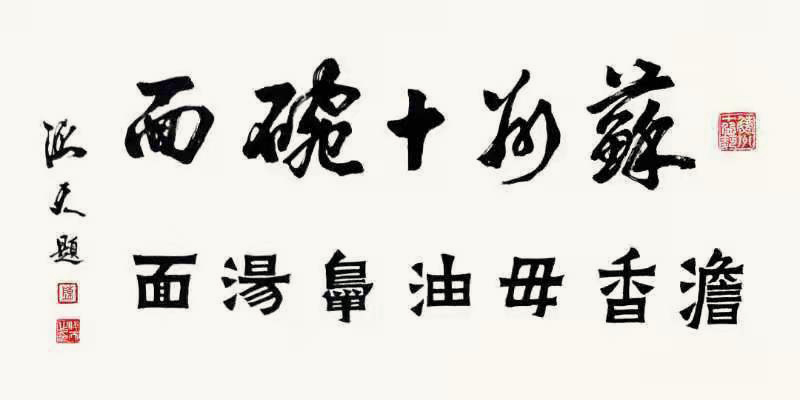 蘇州十碗面
澹香毋油湯面
題